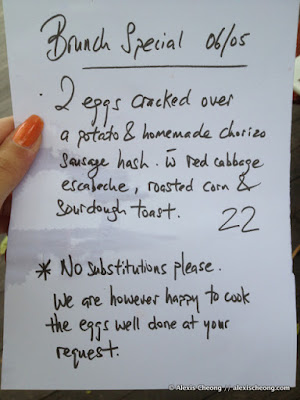 Brunch Special 06/05
2 eggs cracked over
a potato & homemade chorizo
sausage hash. w̄ red cabbage
escabeche, roasted corn &
sourdough toast.
22
* No substitutions please.
We are however happy to cook
the eggs well done at your
request.
© Alexis Cheong // alexischeong.com